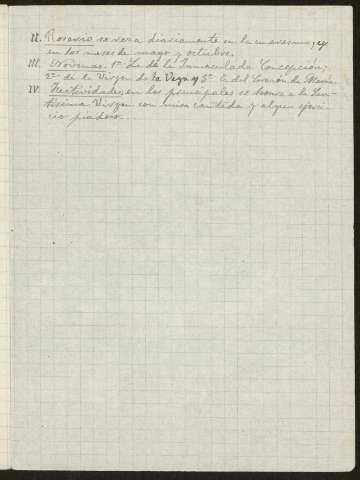 II. Rosario se reza diariamente en la cuaresma, y
en los meses de mayo y octubre.
III. Novenas. 1ª La de la Inmaculada Concepción;
2ª de la Virgen de la Vega y 3ª del Corazón de María
IV. Festividades, en las principales se honra a la San-
tísima Virgen con misa cantada y algún ejerci-
cio piadoso.